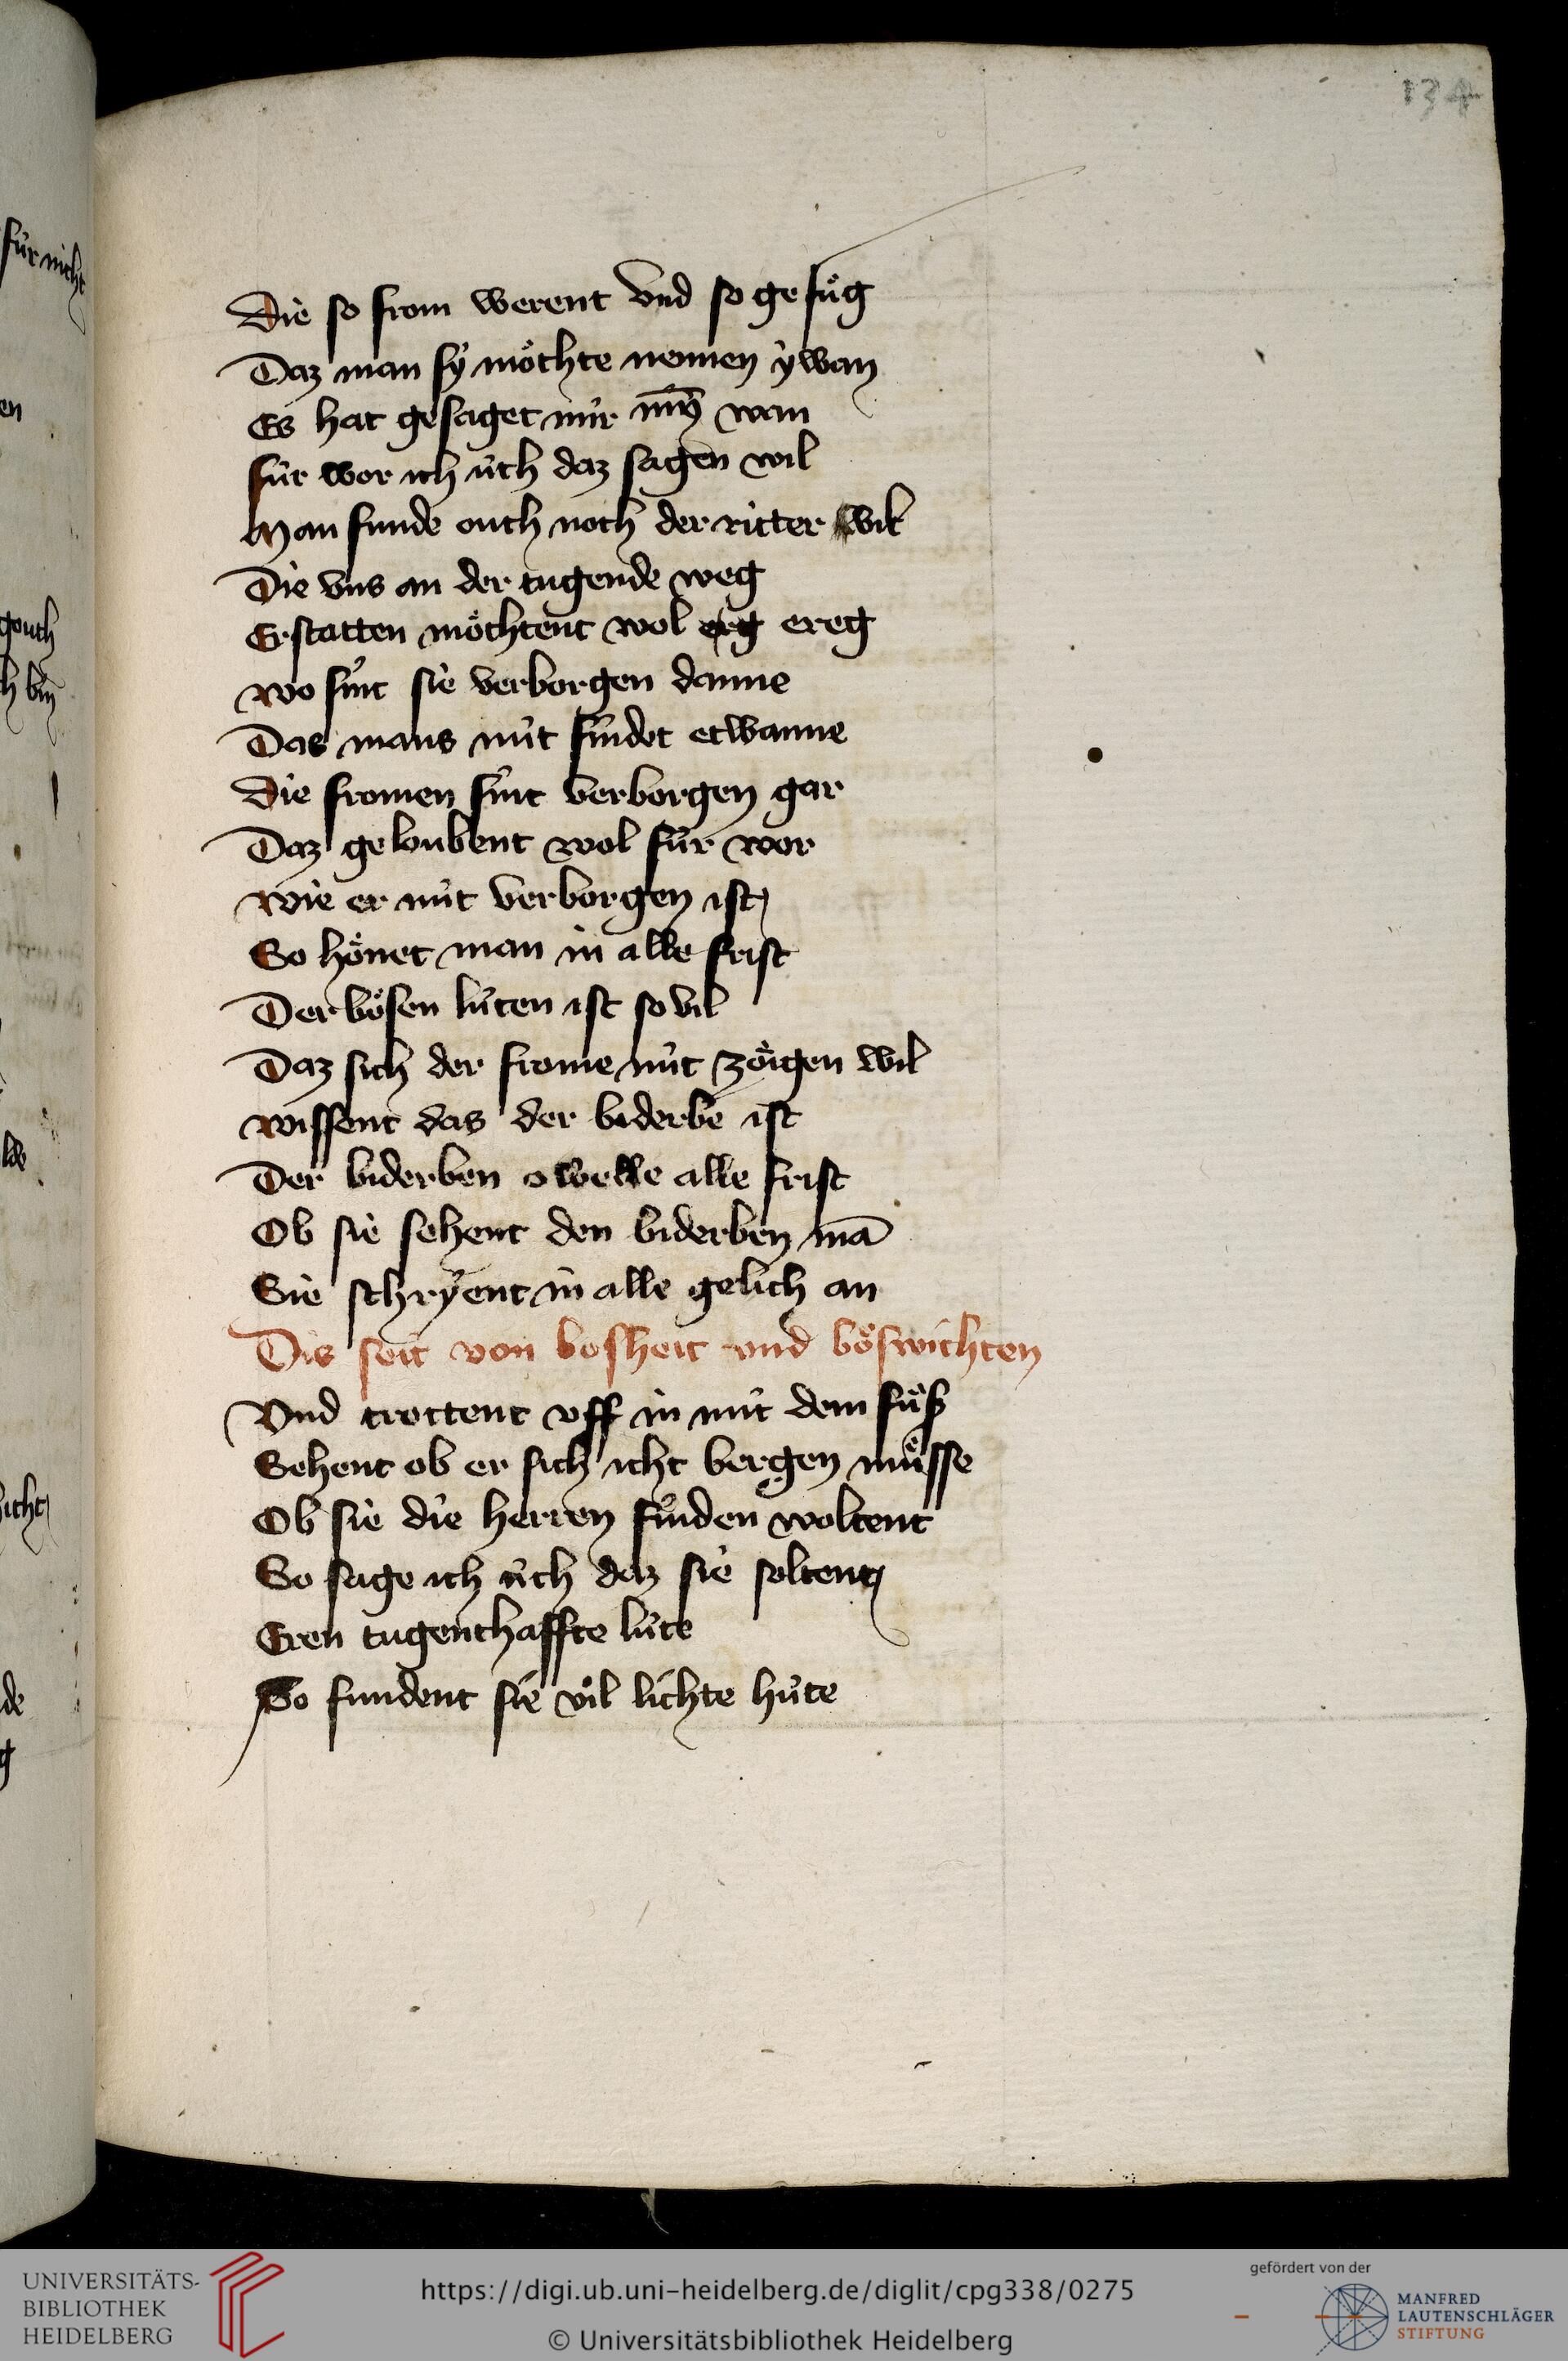 134
Die so from werent vnd so gefuͤg
Daz man sy moͤchte nennen ywan
Es hat gesaget mir mỹ wan
fúr wor ich úch daz sagen wil
Man funde ouch noch der ritter wil
Die vns an der tugende weg
Erstatten moͤchtent wol erg ereg
wo sint sie verborgen danne
Das mans nút findet etwanne
Die fromen sint verborgen gar
Daz geloubent wol fúr wor
wie er nút verborgen ist
So hoͤnet man in alle frist
Der boͤsen lúten ist so vil
Daz sich der frome nút zoͤigen wil
wissent das der biderbe ist
Der biderben owelle alle frist
Ob sie sehent den biderben mā
Sie schryent in alle gelich an
Dis seit von bosheit vnd boͤswichten
Vnd trottent vff in mit dem fuͤß
Sehent ob er sich icht bergen muͤsse
Ob sie die herren finden woltent
So sage ich úch daz sie soltent
Eren tugenthaffte lúte
So fundent sie vil lichte húte
fúr nicht
en
gouch
h bin
lde
icht
de
g
UNIVERSITÄTS-
BIBLIOTHEK
HEIDELBERG
https://digi.ub.uni-heidelberg.de/diglit/cpg338/0275
© Universitätsbibliothek Heidelberg
gefördert von der
MANFRED
LAUTENSCHLÄGER
STIFTUNG